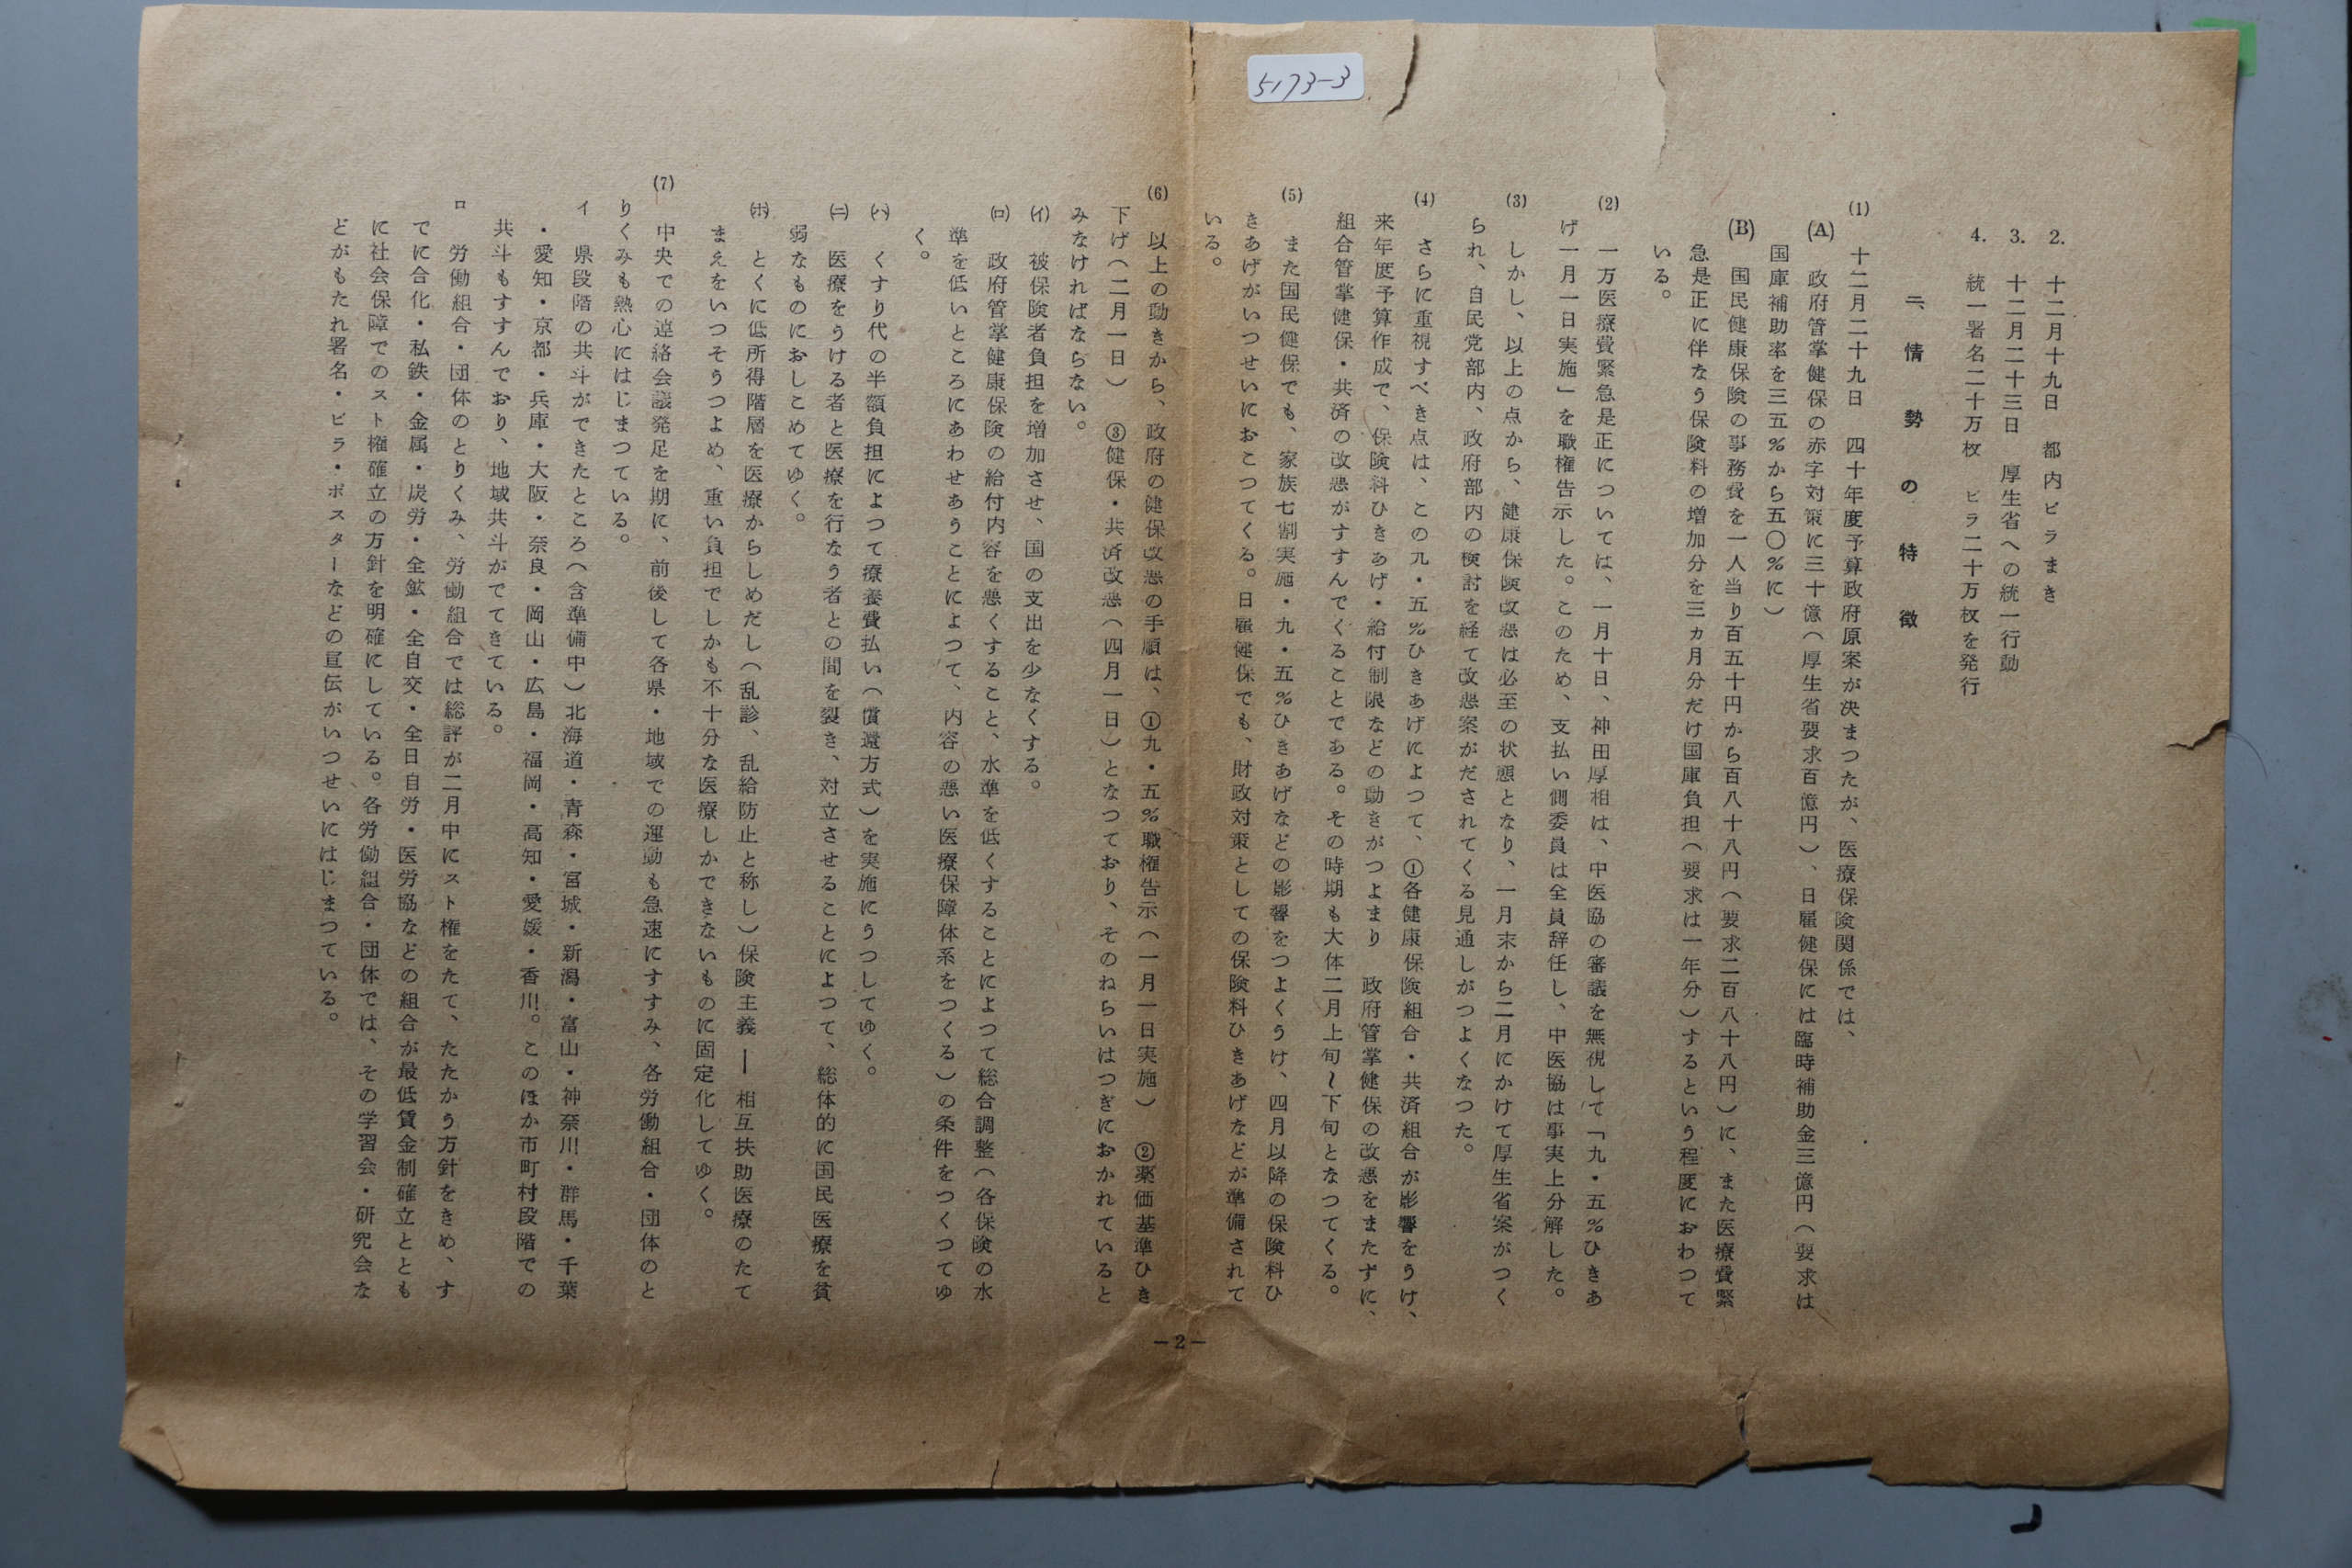 5173-3
2. 十二月十九日 都内ビラまき
3. 十二月二十三日 厚生省への統一行動
4. 統一署名二十万枚 ビラ二十万枚を発行
二、情勢の特徴
(1) 十二月二十九日 四十年度予算政府原案が決まつたが、医療保険関係では、
(A) 政府管掌健保の赤字対策に三十億(厚生省要求百億円)、日雇健保には臨時補助金三億円(要求は
国庫補助率を三五%から五〇%に)
(B) 国民健康保険の事務費を一人当り百五十円から百八十八円(要求二百八十八円)に、また医療費緊
急是正に伴なう保険料の増加分を三ヵ月分だけ国庫負担(要求は一年分)するという程度におわつて
いる。
(2) 一万医療費緊急是正については、一月十日、神田厚相は、中医協の審議を無視して「九・五%ひきあ
げ一月一日実施」を職権告示した。このため、支払い側委員は全員辞任し、中医協は事実上分解した。
(3) しかし、以上の点から、健康保険改悪は必至の状態となり、一月末から二月にかけて厚生省案がつく
られ、自民党部内、政府部内の検討を経て改悪案がだされてくる見通しがつよくなつた。
(4) さらに重視すべき点は、この九・五%ひきあげによつて、①各健康保険組合・共済組合が影響をうけ、
来年度予算作成で、保険料ひきあげ・給付制限などの動きがつよまり 政府管掌健保の改悪をまたずに、
組合管掌健保・共済の改悪がすすんでくることである。その時期も大体二月上旬〜下旬となつてくる。
(5) また国民健保でも、家族七割実施・九・五%ひきあげなどの影響をつよくうけ、四月以降の保険料ひ
きあげがいつせいにおこつてくる。日雇健保でも、財政対策としての保険料ひきあげなどが準備されて
いる。
(6) 以上の動きから、政府の健保改悪の手順は、①九・五%職権告示(一月一日実施) ②薬価基準ひき
下げ(二月一日) ③健保・共済改悪(四月一日)となつており、そのねらいはつぎにおかれていると
みなければならない。
(イ) 被保険者負担を増加させ、国の支出を少なくする。
(ロ) 政府管掌健康保険の給付内容を悪くすること、水準を低くすることによつて総合調整(各保険の水
準を低いところにあわせあうことによつて、内容の悪い医療保障体系をつくる)の条件をつくつてゆ
く。
(ハ) くすり代の半額負担によつて療養費払い(償還方式)を実施にうつしてゆく。
(ニ) 医療をうける者と医療を行なう者との間を裂き、対立させることによつて、総体的に国民医療を貧
弱なものにおしこめてゆく。
(ホ) とくに低所得階層を医療からしめだし(乱診、乱給防止と称し)保険主義――相互扶助医療のたて
まえをいつそうつよめ、重い負担でしかも不十分な医療しかできないものに固定化してゆく。
(7) 中央での連絡会議発足を期に、前後して各県・地域での運動も急速にすすみ、各労働組合・団体のと
りくみも熱心にはじまつている。
イ 県段階の共斗ができたところ(含準備中)北海道・青森・宮城・新潟・富山・神奈川・群馬・千葉
・愛知・京都・兵庫・大阪・奈良・岡山・広島・福岡・高知・愛媛・香川。このほか市町村段階での
共斗もすすんでおり、地域共斗がでてきている。
ロ 労働組合・団体のとりくみ、労働組合では総評が二月中にスト権をたて、たたかう方針をきめ、す
でに合化・私鉄・金属・炭労・全鉱・全自交・全日自労・医労協などの組合が最低賃金制確立ととも
に社会保障でのスト権確立の方針を明確にしている。各労働組合・団体では、その学習会・研究会な
どがもたれ署名・ビラ・ポスターなどの宣伝がいつせいにはじまつている。
―2―